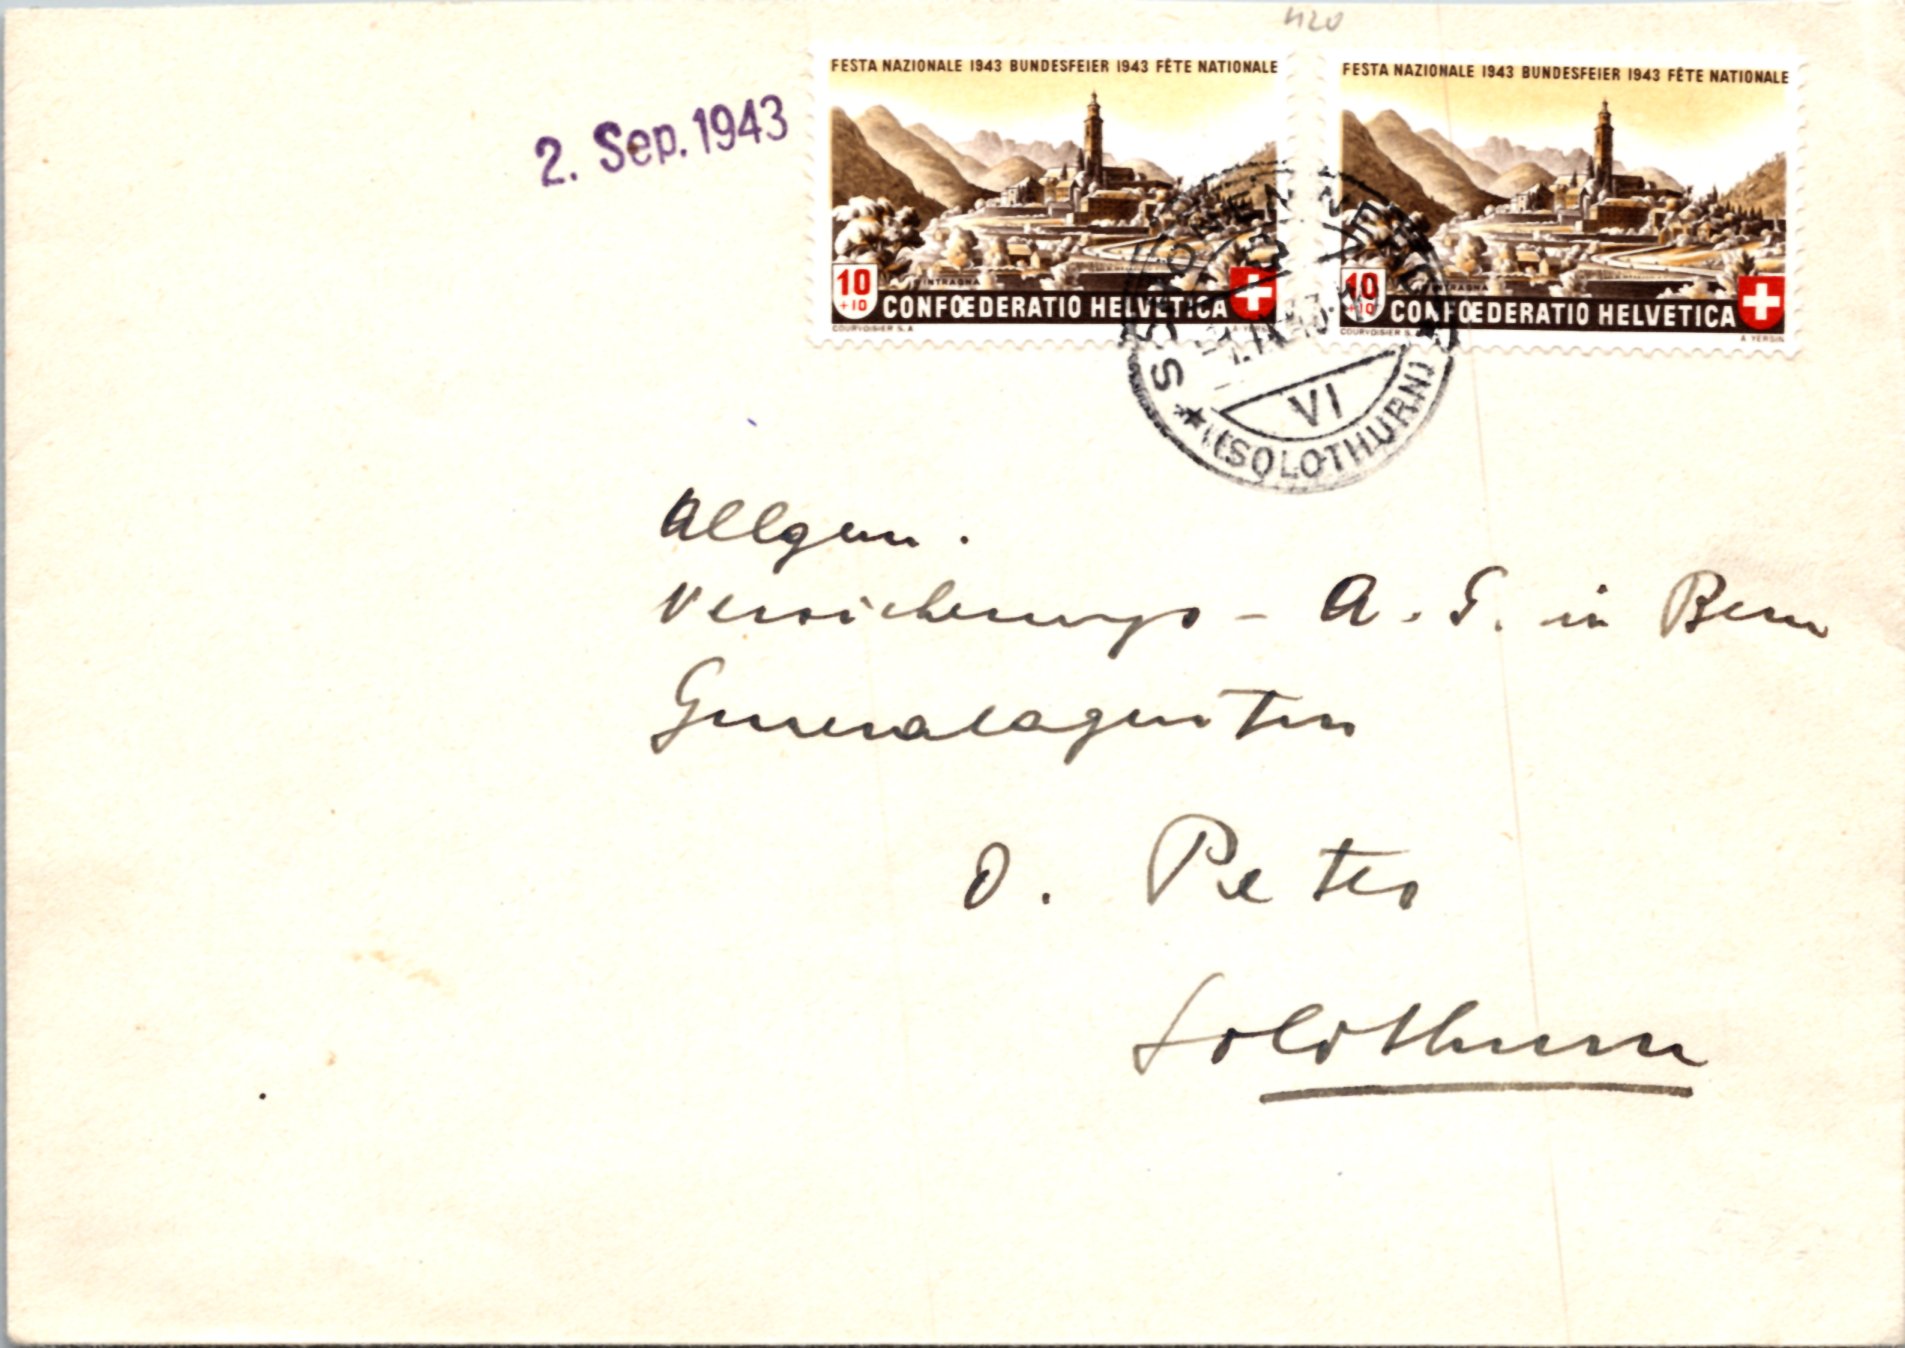 1120
2. Sep. 1943
FESTA NAZIONALE 1943 BUNDESFEIER 1943 FÊTE NATIONALE
10
+10
INTRAGNA
CONFŒDERATIO HELVETICA
COURVOISIER S.A.
A YERSIN
FESTA NAZIONALE 1943 BUNDESFEIER 1943 FÊTE NATIONALE
10
+10
INTRAGNA
CONFŒDERATIO HELVETICA
COURVOISIER S.
A YERSIN
SCHÖNENWERD
VI
(SOLOTHURN)
Allgem.
Versicherungs - A. G. in Bern
Generalagentur
O. Peter
Solothurn